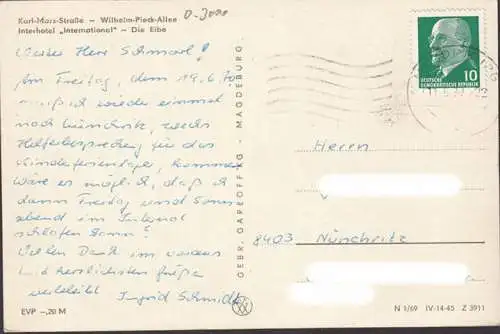 Karl-Marx-Straße – Wilhelm-Pieck-Allee
Interhotel „International" – Die Elbe
Lieber Herr Schmorl!
Am Freitag, dem 19.6.70
muß ich wieder einmal
nach Nünchritz, wegen
Helferbesprechung für das
Kinderferienlager, kommen.
Wäre es möglich, daß ich
dann Freitag und Sonn-
abend im Internat
schlafen kann?
Vielen Dank im voraus
und herzlichsten Grüße
verbleibt Ingrid Schmidt
EVP –,20 M
GEBR. GAREIS KG · MAGDEBURG
10
DEUTSCHE
DEMOKRATISCHE REPUBLIK
Herrn
8403 Nünchritz
N 1/69 IV-14-45 Z 3911